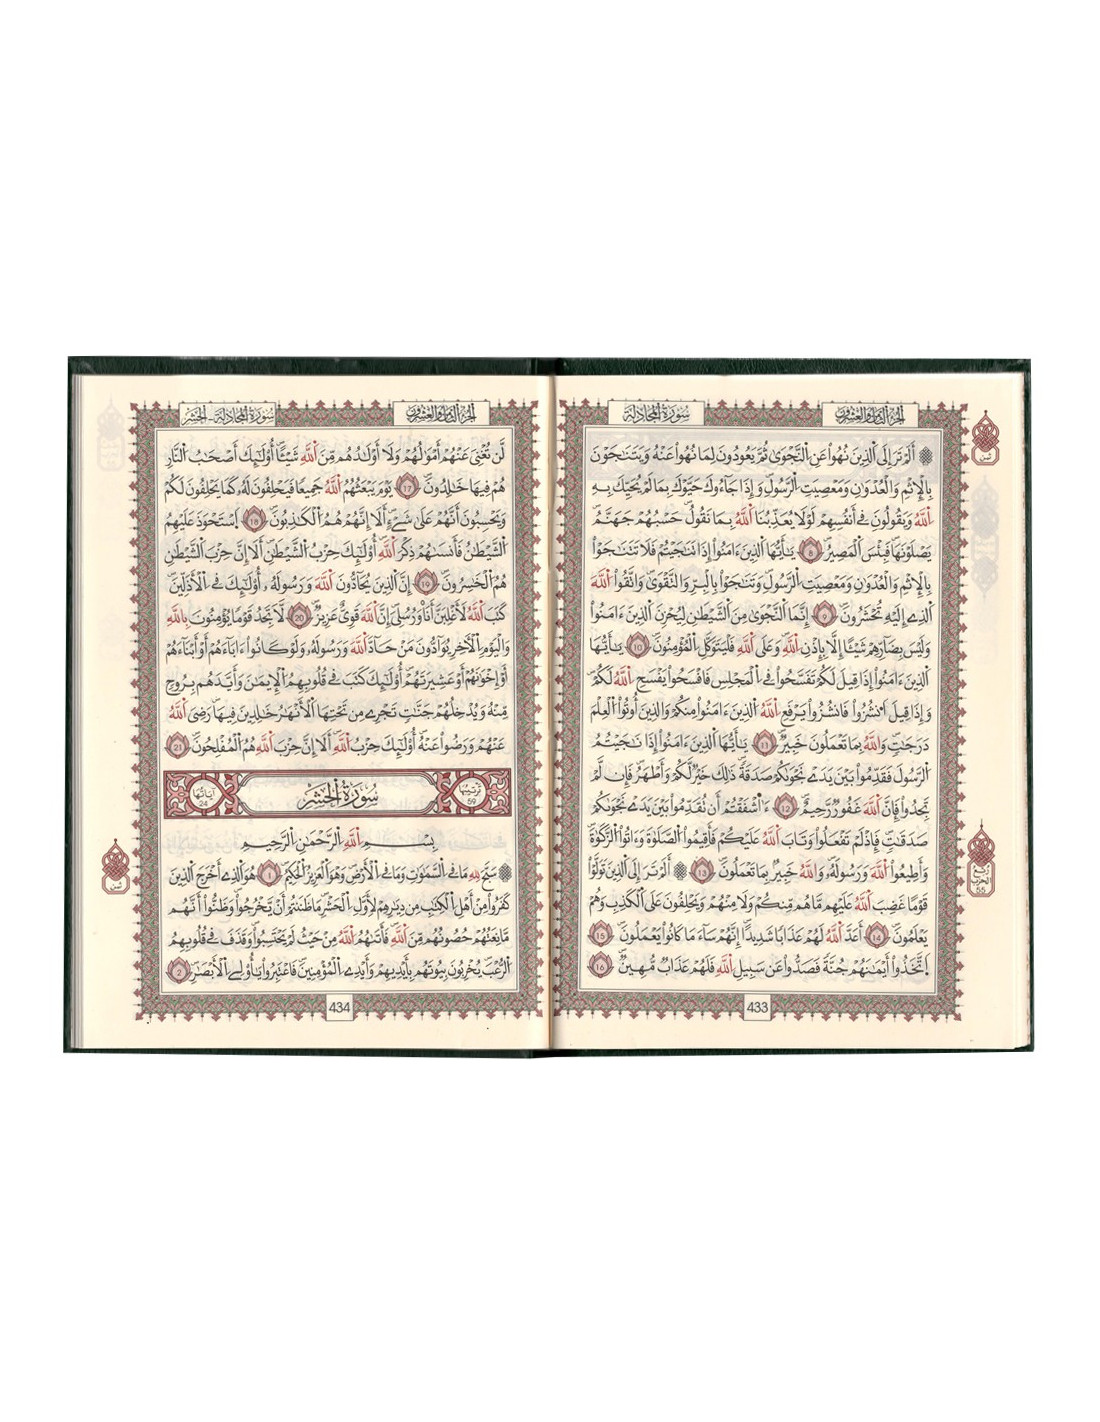 الجزء الثامن والعشرون
سورة المجادلة
۞ أَلَمْ تَرَ إِلَى الَّذِينَ نُهُوا عَنِ النَّجْوَىٰ ثُمَّ يَعُودُونَ لِمَا نُهُوا عَنْهُ وَيَتَنَاجَوْنَ
بِالْإِثْمِ وَالْعُدْوَانِ وَمَعْصِيَتِ الرَّسُولِ وَإِذَا جَاءُوكَ حَيَّوْكَ بِمَا لَمْ يُحَيِّكَ بِهِ
اللَّهُ وَيَقُولُونَ فِي أَنفُسِهِمْ لَوْلَا يُعَذِّبُنَا اللَّهُ بِمَا نَقُولُ حَسْبُهُمْ جَهَنَّمُ
يَصْلَوْنَهَا فَبِئْسَ الْمَصِيرُ 8 يَـٰأَيُّهَا الَّذِينَ ءَامَنُوا إِذَا تَنَـٰجَيْتُمْ فَلَا تَتَنَـٰجَوْا
بِالْإِثْمِ وَالْعُدْوَانِ وَمَعْصِيَتِ الرَّسُولِ وَتَنَـٰجَوْا بِالْبِرِّ وَالتَّقْوَىٰ وَاتَّقُوا اللَّهَ
الَّذِي إِلَيْهِ تُحْشَرُونَ 9 إِنَّمَا النَّجْوَىٰ مِنَ الشَّيْطَـٰنِ لِيُحْزِنَ الَّذِينَ ءَامَنُوا
وَلَيْسَ بِضَارِّهِمْ شَيْـًٔا إِلَّا بِإِذْنِ اللَّهِ وَعَلَى اللَّهِ فَلْيَتَوَكَّلِ الْمُؤْمِنُونَ 10 يَـٰأَيُّهَا
الَّذِينَ ءَامَنُوا إِذَا قِيلَ لَكُمْ تَفَسَّحُوا فِي الْمَجْلِسِ فَافْسَحُوا يَفْسَحِ اللَّهُ لَكُمْ
وَإِذَا قِيلَ انشُزُوا فَانشُزُوا يَرْفَعِ اللَّهُ الَّذِينَ ءَامَنُوا مِنكُمْ وَالَّذِينَ أُوتُوا الْعِلْمَ
دَرَجَـٰتٍ وَاللَّهُ بِمَا تَعْمَلُونَ خَبِيرٌ 11 يَـٰأَيُّهَا الَّذِينَ ءَامَنُوا إِذَا نَـٰجَيْتُمُ
الرَّسُولَ فَقَدِّمُوا بَيْنَ يَدَيْ نَجْوَىٰكُمْ صَدَقَةً ذَٰلِكَ خَيْرٌ لَّكُمْ وَأَطْهَرُ فَإِن لَّمْ
تَجِدُوا فَإِنَّ اللَّهَ غَفُورٌ رَّحِيمٌ 12 ءَاشْفَقْتُمْ أَن تُقَدِّمُوا بَيْنَ يَدَيْ نَجْوَىٰكُمْ
صَدَقَـٰتٍ فَإِذْ لَمْ تَفْعَلُوا وَتَابَ اللَّهُ عَلَيْكُمْ فَأَقِيمُوا الصَّلَوٰةَ وَءَاتُوا الزَّكَوٰةَ
وَأَطِيعُوا اللَّهَ وَرَسُولَهُ وَاللَّهُ خَبِيرٌ بِمَا تَعْمَلُونَ 13 ۞ أَلَمْ تَرَ إِلَى الَّذِينَ تَوَلَّوْا
قَوْمًا غَضِبَ اللَّهُ عَلَيْهِم مَّا هُم مِّنكُمْ وَلَا مِنْهُمْ وَيَحْلِفُونَ عَلَى الْكَذِبِ وَهُمْ
يَعْلَمُونَ 14 أَعَدَّ اللَّهُ لَهُمْ عَذَابًا شَدِيدًا إِنَّهُمْ سَاءَ مَا كَانُوا يَعْمَلُونَ 15
اِتَّخَذُوا أَيْمَـٰنَهُمْ جُنَّةً فَصَدُّوا عَن سَبِيلِ اللَّهِ فَلَهُمْ عَذَابٌ مُّهِينٌ 16
ثمن
ربع
الحزب
55
433
الجزء الثامن والعشرون
سورة المجادلة - الحشر
لَّن تُغْنِيَ عَنْهُمْ أَمْوَٰلُهُمْ وَلَا أَوْلَـٰدُهُم مِّنَ اللَّهِ شَيْـًٔا أُوْلَـٰئِكَ أَصْحَـٰبُ النَّارِ
هُمْ فِيهَا خَـٰلِدُونَ 17 يَوْمَ يَبْعَثُهُمُ اللَّهُ جَمِيعًا فَيَحْلِفُونَ لَهُ كَمَا يَحْلِفُونَ لَكُمْ
وَيَحْسِبُونَ أَنَّهُمْ عَلَىٰ شَيْءٍ أَلَا إِنَّهُمْ هُمُ الْكَـٰذِبُونَ 18 اِسْتَحْوَذَ عَلَيْهِمُ
الشَّيْطَـٰنُ فَأَنسَىٰهُمْ ذِكْرَ اللَّهِ أُوْلَـٰئِكَ حِزْبُ الشَّيْطَـٰنِ أَلَا إِنَّ حِزْبَ الشَّيْطَـٰنِ
هُمُ الْخَـٰسِرُونَ 19 إِنَّ الَّذِينَ يُحَادُّونَ اللَّهَ وَرَسُولَهُ أُوْلَـٰئِكَ فِي الْأَذَلِّينَ
كَتَبَ اللَّهُ لَأَغْلِبَنَّ أَنَا وَرُسُلِيَ إِنَّ اللَّهَ قَوِيٌّ عَزِيزٌ 20 لَّا تَجِدُ قَوْمًا يُؤْمِنُونَ بِاللَّهِ
وَالْيَوْمِ الْأَخِرِ يُوَادُّونَ مَنْ حَادَّ اللَّهَ وَرَسُولَهُ وَلَوْ كَانُوا ءَابَاءَهُمْ أَوْ أَبْنَاءَهُمْ
أَوْ إِخْوَٰنَهُمْ أَوْ عَشِيرَتَهُمْ أُوْلَـٰئِكَ كَتَبَ فِي قُلُوبِهِمُ الْإِيمَـٰنَ وَأَيَّدَهُم بِرُوحٍ
مِّنْهُ وَيُدْخِلُهُمْ جَنَّـٰتٍ تَجْرِي مِن تَحْتِهَا الْأَنْهَـٰرُ خَـٰلِدِينَ فِيهَا رَضِيَ اللَّهُ
عَنْهُمْ وَرَضُوا عَنْهُ أُوْلَـٰئِكَ حِزْبُ اللَّهِ أَلَا إِنَّ حِزْبَ اللَّهِ هُمُ الْمُفْلِحُونَ 21
ترتيبها 59
سُورَةُ الْحَشْرِ
آياتها 24
بِسْمِ اللَّهِ الرَّحْمَـٰنِ الرَّحِيمِ
۞ سَبَّحَ لِلَّهِ مَا فِي السَّمَـٰوَٰتِ وَمَا فِي الْأَرْضِ وَهُوَ الْعَزِيزُ الْحَكِيمُ 1 هُوَ الَّذِي أَخْرَجَ الَّذِينَ
كَفَرُوا مِنْ أَهْلِ الْكِتَـٰبِ مِن دِيَـٰرِهِمْ لِأَوَّلِ الْحَشْرِ مَا ظَنَنتُمْ أَن يَّخْرُجُوا وَظَنُّوا أَنَّهُم
مَّانِعَتُهُمْ حُصُونُهُم مِّنَ اللَّهِ فَأَتَىٰهُمُ اللَّهُ مِنْ حَيْثُ لَمْ يَحْتَسِبُوا وَقَذَفَ فِي قُلُوبِهِمُ
الرُّعْبَ يُخْرِبُونَ بِيُوتَهُم بِأَيْدِيهِمْ وَأَيْدِي الْمُؤْمِنِينَ فَاعْتَبِرُوا يَـٰأُوْلِي الْأَبْصَـٰرِ 2
ثمن
434